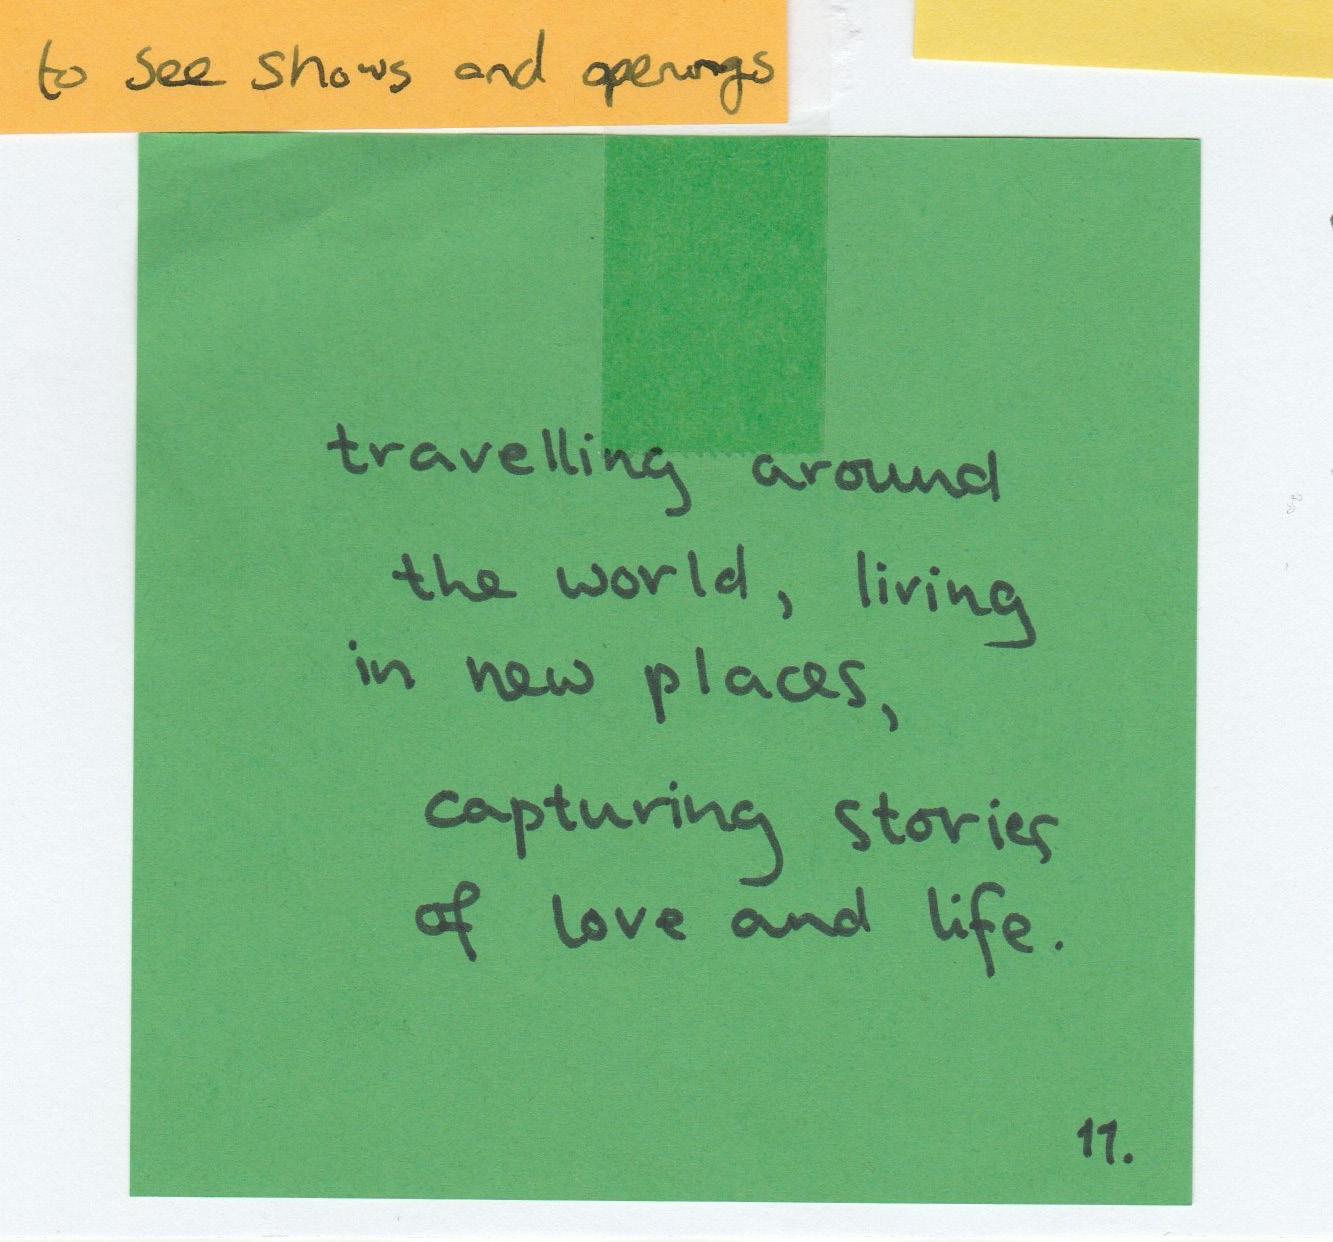 to see shows and openings
travelling around
the world, living
in new places,
capturing stories
of love and life.
11.